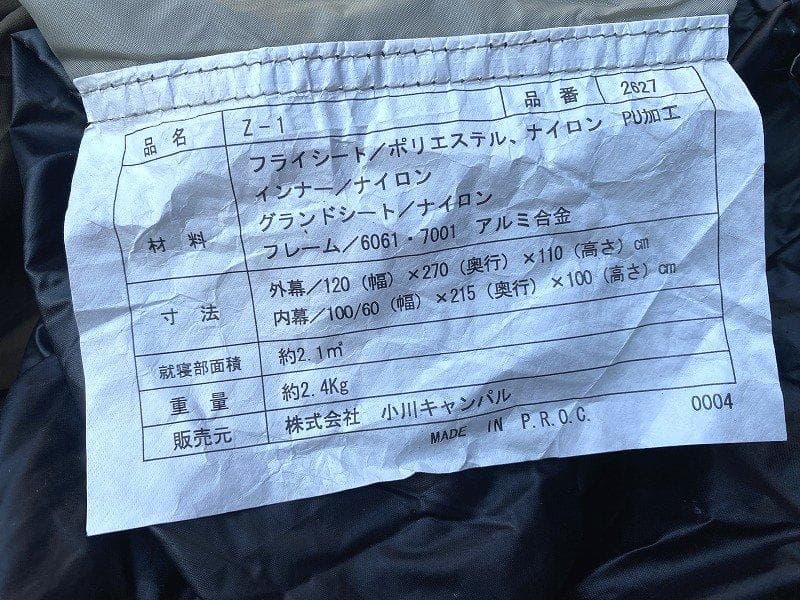 品名 Z-1 品番 2627
材料 フライシート/ポリエステル、ナイロン PU加工
インナー/ナイロン
グランドシート/ナイロン
フレーム/6061・7001 アルミ合金
寸法 外幕/120(幅)×270(奥行)×110(高さ)cm
内幕/100/60(幅)×215(奥行)×100(高さ)cm
就寝部面積 約2.1㎡
重量 約2.4Kg
販売元 株式会社 小川キャンパル
MADE IN P.R.O.C. 0004